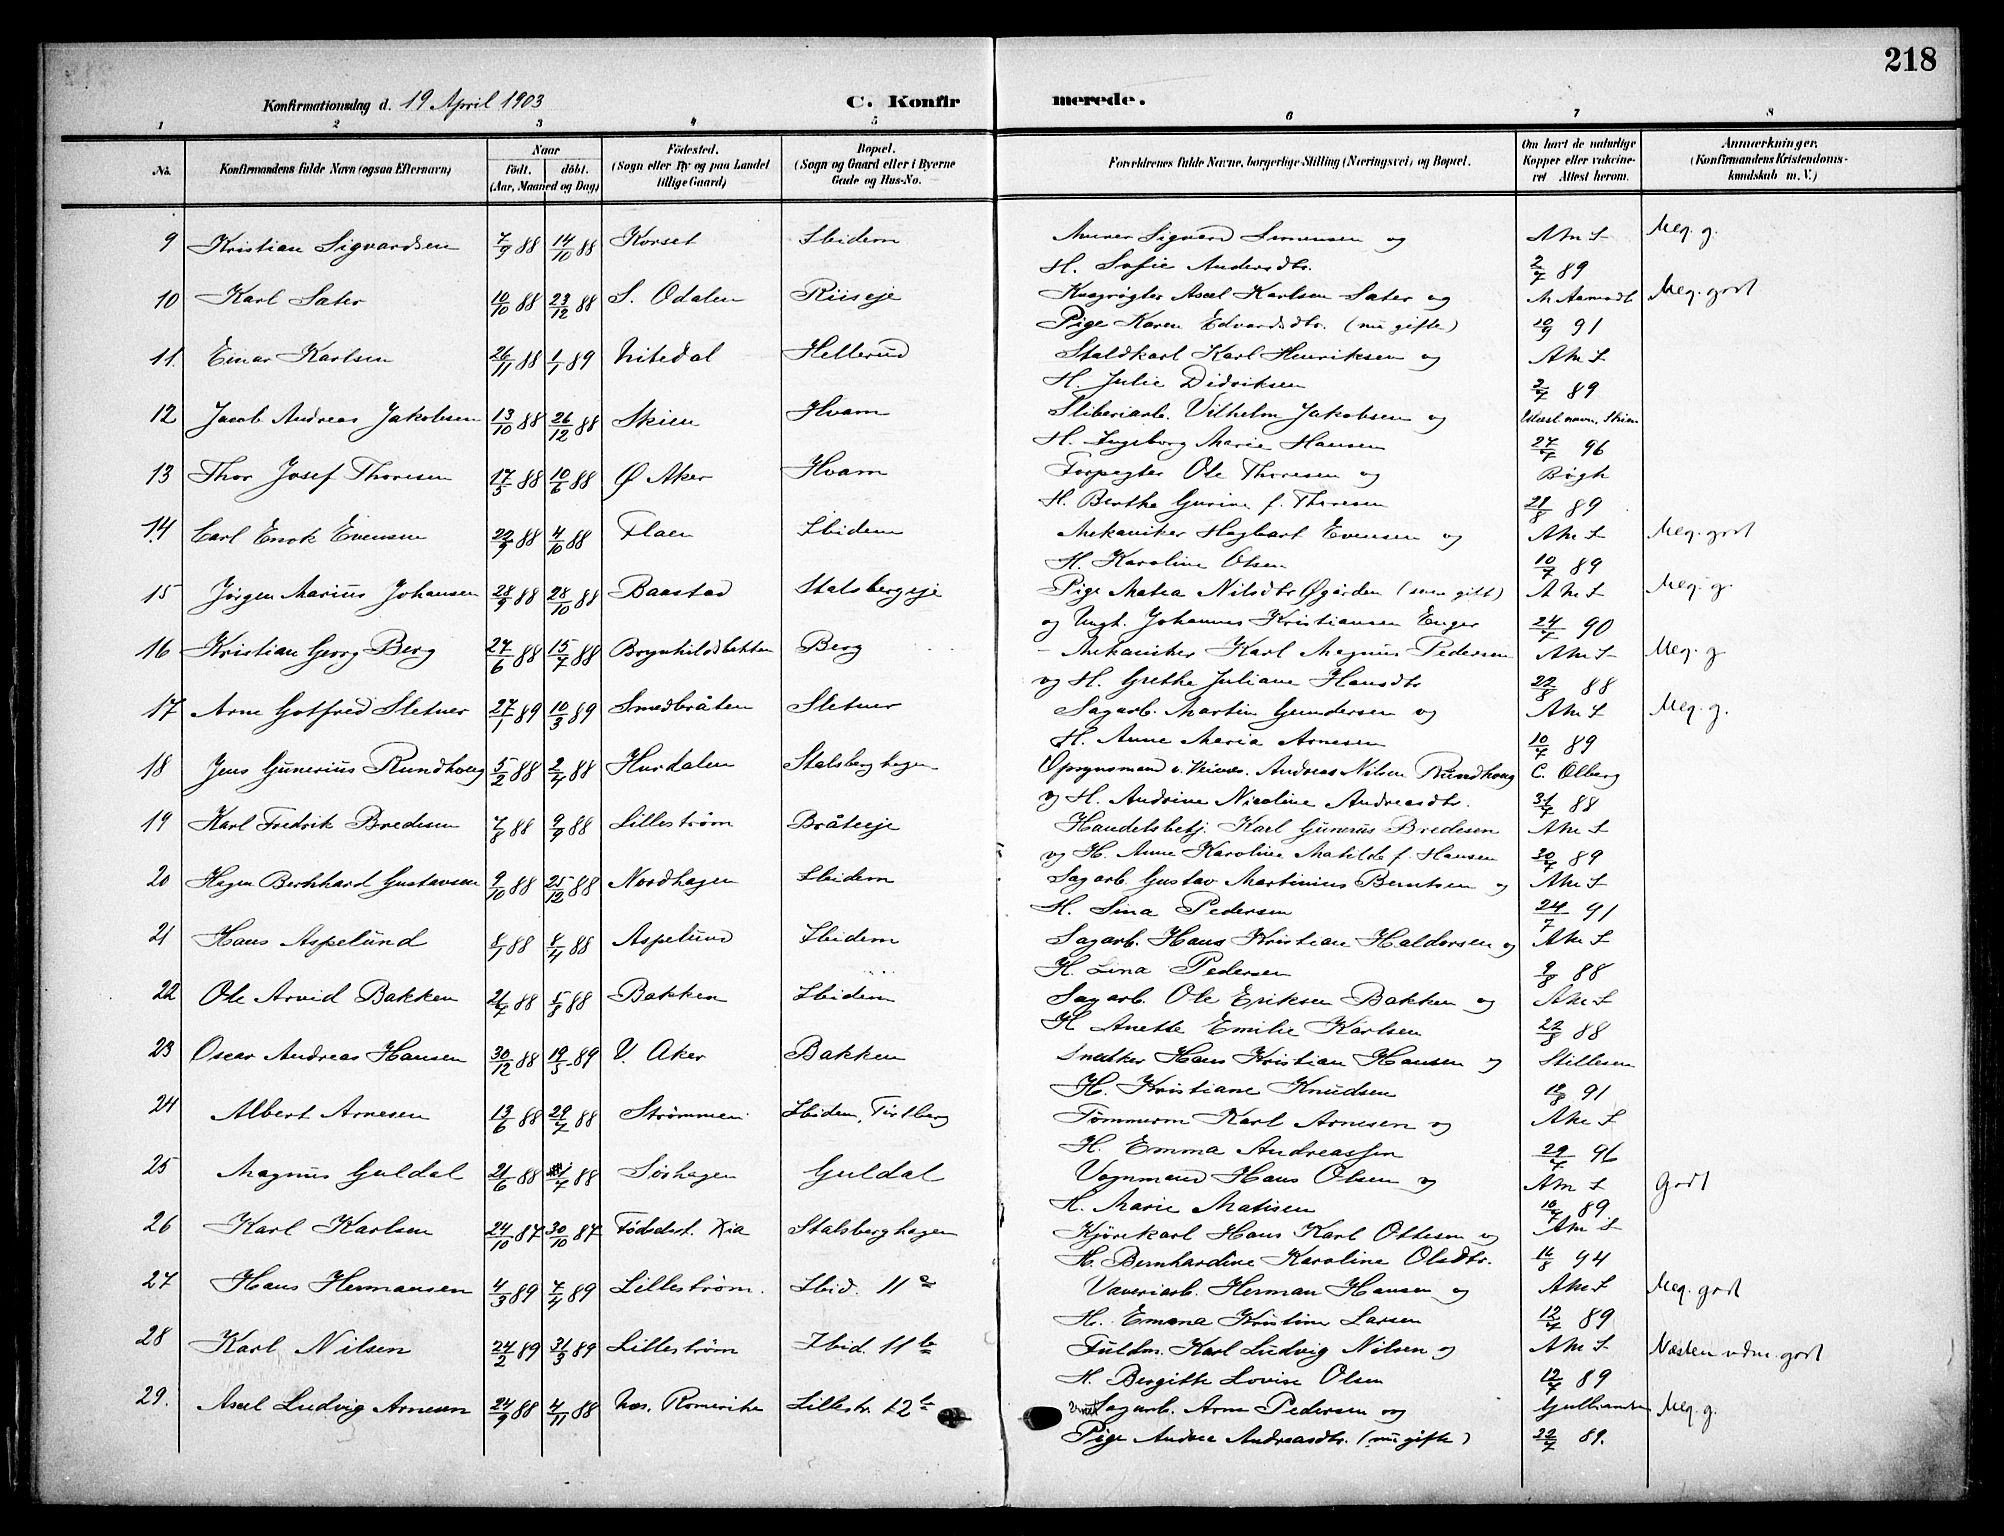 218
Konfirmationsdag d. 19 April 1903 C. Konfirmerede.
1 2 3 4 5 6 7 8
No. Konfirmandens fulde Navn (ogsaa Efternavn) Naar födt. döbt. (Aar, Maaned og Dag) Födested. (Sogn eller By og paa Landet tillige Gaard) Bopæl. (Sogn og Gaard eller i Byerne Gade og Hus-No. Forældrenes fulde Navne, borgerlige Stilling (Næringsvei) og Bopæl. Om havt de naturlige Kopper eller vakcineret Attest herom. Anmærkninger. (Konfirmandens Kristendomskundskab m. V.)
9 Kristian Sigvardsen 7/9 88 14/10 88 Korset Ibidem Murer Sigvard Simensen og Meg. g.
H. Sofie Andersdtr. 2/7 89
10 Karl Sæter 10/10 88 23/12 88 S. Odalen Riiseje Kvægrøgter Axel Karlsen Sæter og M Aamodt Meg. godt
Pige Karen Edvardsdtr. (nu gifte) 10/9 91
11. Einar Karlsen 26/11 88 1/1 89 Nitedal Hellerud Staldkarl Karl Henriksen og
H. Julie Didriksen 2/7 89
12 Jacob Andreas Jakobsen 13/10 88 26/12 88 Skien Hvam Sliberiarb. Vilhelm Jakobsen og Skien
H. Ingeborg Marie Hansen 27/7 96
13 Thor Josef Thoresen 17/5 88 10/6 88 Ø Aker Hvam Forpagter Ole Thoresen og Bøgh
H. Berthe Gurine f. Thoresen 28/8 89
14. Carl Enok Evensen 22/9 88 4/10 88 Flaen Ibidem Mekaniker Hagbart Evensen og Meg. godt
H. Karoline Olsen 10/7 89
15 Jørgen Marius Johansen 28/9 88 28/10 88 Baastad Stalsbergeje Pige Matea Nilsdtr Øgården Meg. g.
og Ungk. Johannes Kristiansen Enger 24/7 90
16 Kristian Georg Berg 27/6 88 15/7 88 Brynhildsbakken Berg Mekaniker Karl Magnus Pedersen Meg. g
og H. Grethe Juliane Hansdtr 22/8 88
17 Arne Gotfred Sletner 27/1 89 10/3 89 Smedbråten Sletner Sagarb. Martin Gundersen og Meg. g.
H. Anne Maria Arnesen 10/7 89
18 Jens Gunerius Rundhoug 5/2 88 2/4 88 Hurdalen Stalsberghagen Opsynsmand v. Andreas Nilsen Rundhoug C. Olberg
og H. Andrine Nicoline Andreasdtr. 31/7 88
19 Karl Fredrik Bredesen 7/8 88 9/9 88 Lillestrøm Bråteeje Handelsbetj. Karl Gunerus Bredesen
og H. Anne Karoline Matilde f. Hansen 30/7 89
20 Hagen Bernhard Gustavsen 9/10 88 25/12 88 Nordhagen Ibidem Sagarb. Gustav Martinius Berntsen og
H. Lina Pedersen 24/7 91
21 Hans Aspelund 8/1 88 8/4 88 Aspelund Ibidem Sagarb. Hans Kristian Haldorsen og
H. Lina Pedersen 9/8 88
22 Ole Arvid Bakken 21/7 88 5/8 88 Bakken Ibidem Sagarb. Ole Eriksen Bakken og
H Anette Emilie Karlsen 22/8 88
23 Oscar Andreas Hansen 30/12 88 19/5 89 V. Aker Bakken Snekker Hans Kristian Hansen og Stillesen
H. Kristiane Knudsen 12/8 91
24 Albert Arnesen 13/6 88 29/7 88 Strømmen Ibidem, Tørtberg Tømmerm Karl Arnesen og
H. Emma Andreassen 29/7 96
25 Magnus Guldal 21/6 88 1/7 88 Sørhagen Guldal Vognmand Hans Olsen og Godt
H. Marie Matisen 10/7 89
26 Karl Karlsen 24/10 87 30/10 87 Fødselsst. Kia Stalsberghagen Kjørekarl Hans Karl Ottesen og
H. Bernhardine Karoline Olsdtr. 16/8 94
27 Hans Hermansen 4/3 89 7/4 89 Lillestrøm. Ibid. 11 a Væveriarb. Herman Hansen og Meg. godt
H. Emma Kristine Larsen 12/7 89
28 Karl Nilsen 24/2 89 31/3 89 Lillestrøm Ibid. 11 b Fuldm. Karl Ludvig Nilsen og Næsten udm. godt
H. Bergitte Lovise Olsen 12/7 89
29. Axel Ludvig Arnesen 24/9 88 4/11 88 Næs. Romerike Lillestr. 12 b Sagarb. Arne Pedersen og Meg. g.
Pige Andrea Andreasdtr. (nu gifte) 22/7 89.